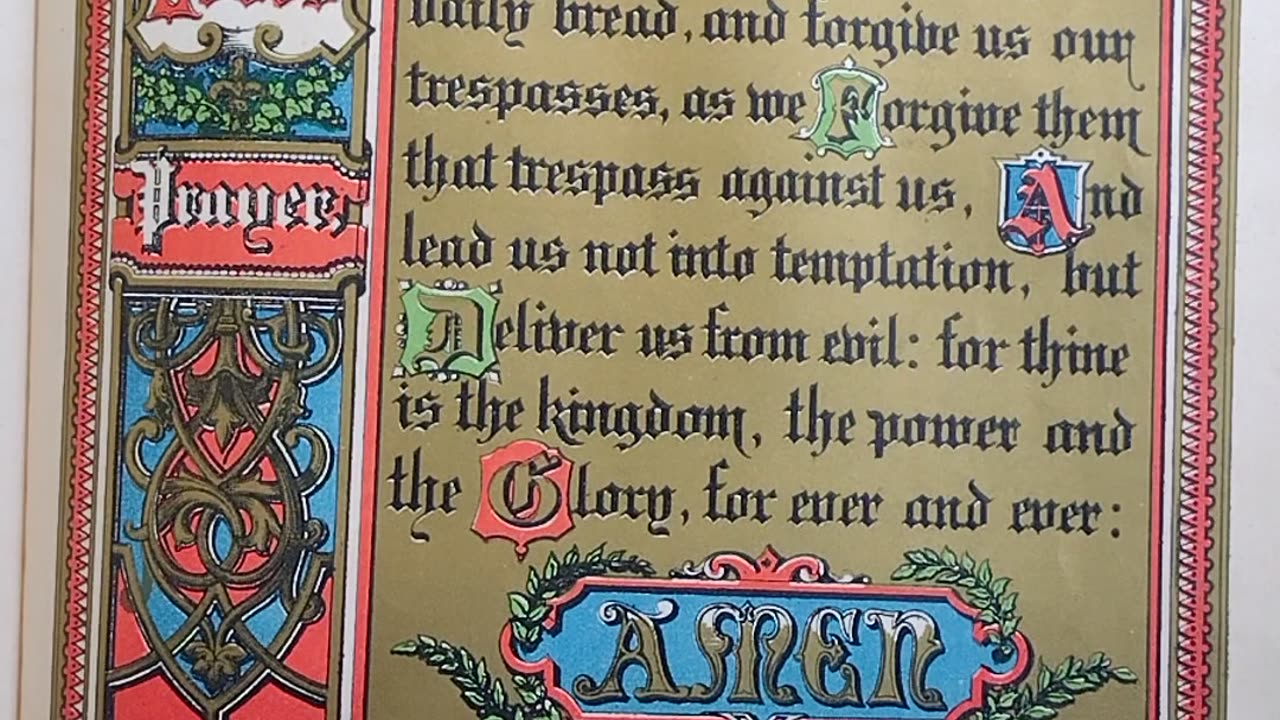 Prayer,
daily bread, and forgive us our
trespasses, as we Forgive them
that trespass against us, And
lead us not into temptation, but
Deliver us from evil: for thine
is the kingdom, the power and
the Glory, for ever and ever:
AMEN